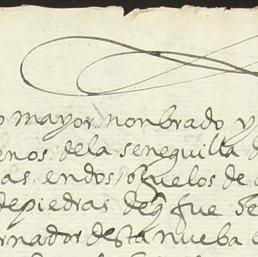 o mayor nonbrado y
enos dela seneguilla d
as. endos ofuelos de
depiedras deq fue Se
ernador desta nueba